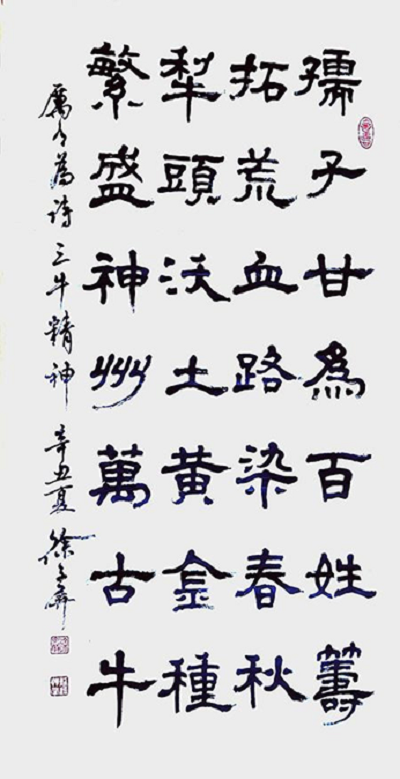 孺子甘為百姓籌
拓荒血路染春秋
犁頭沃土黃金種
繁盛神州萬古牛
厲有為詩三牛精神 辛丑夏 徐